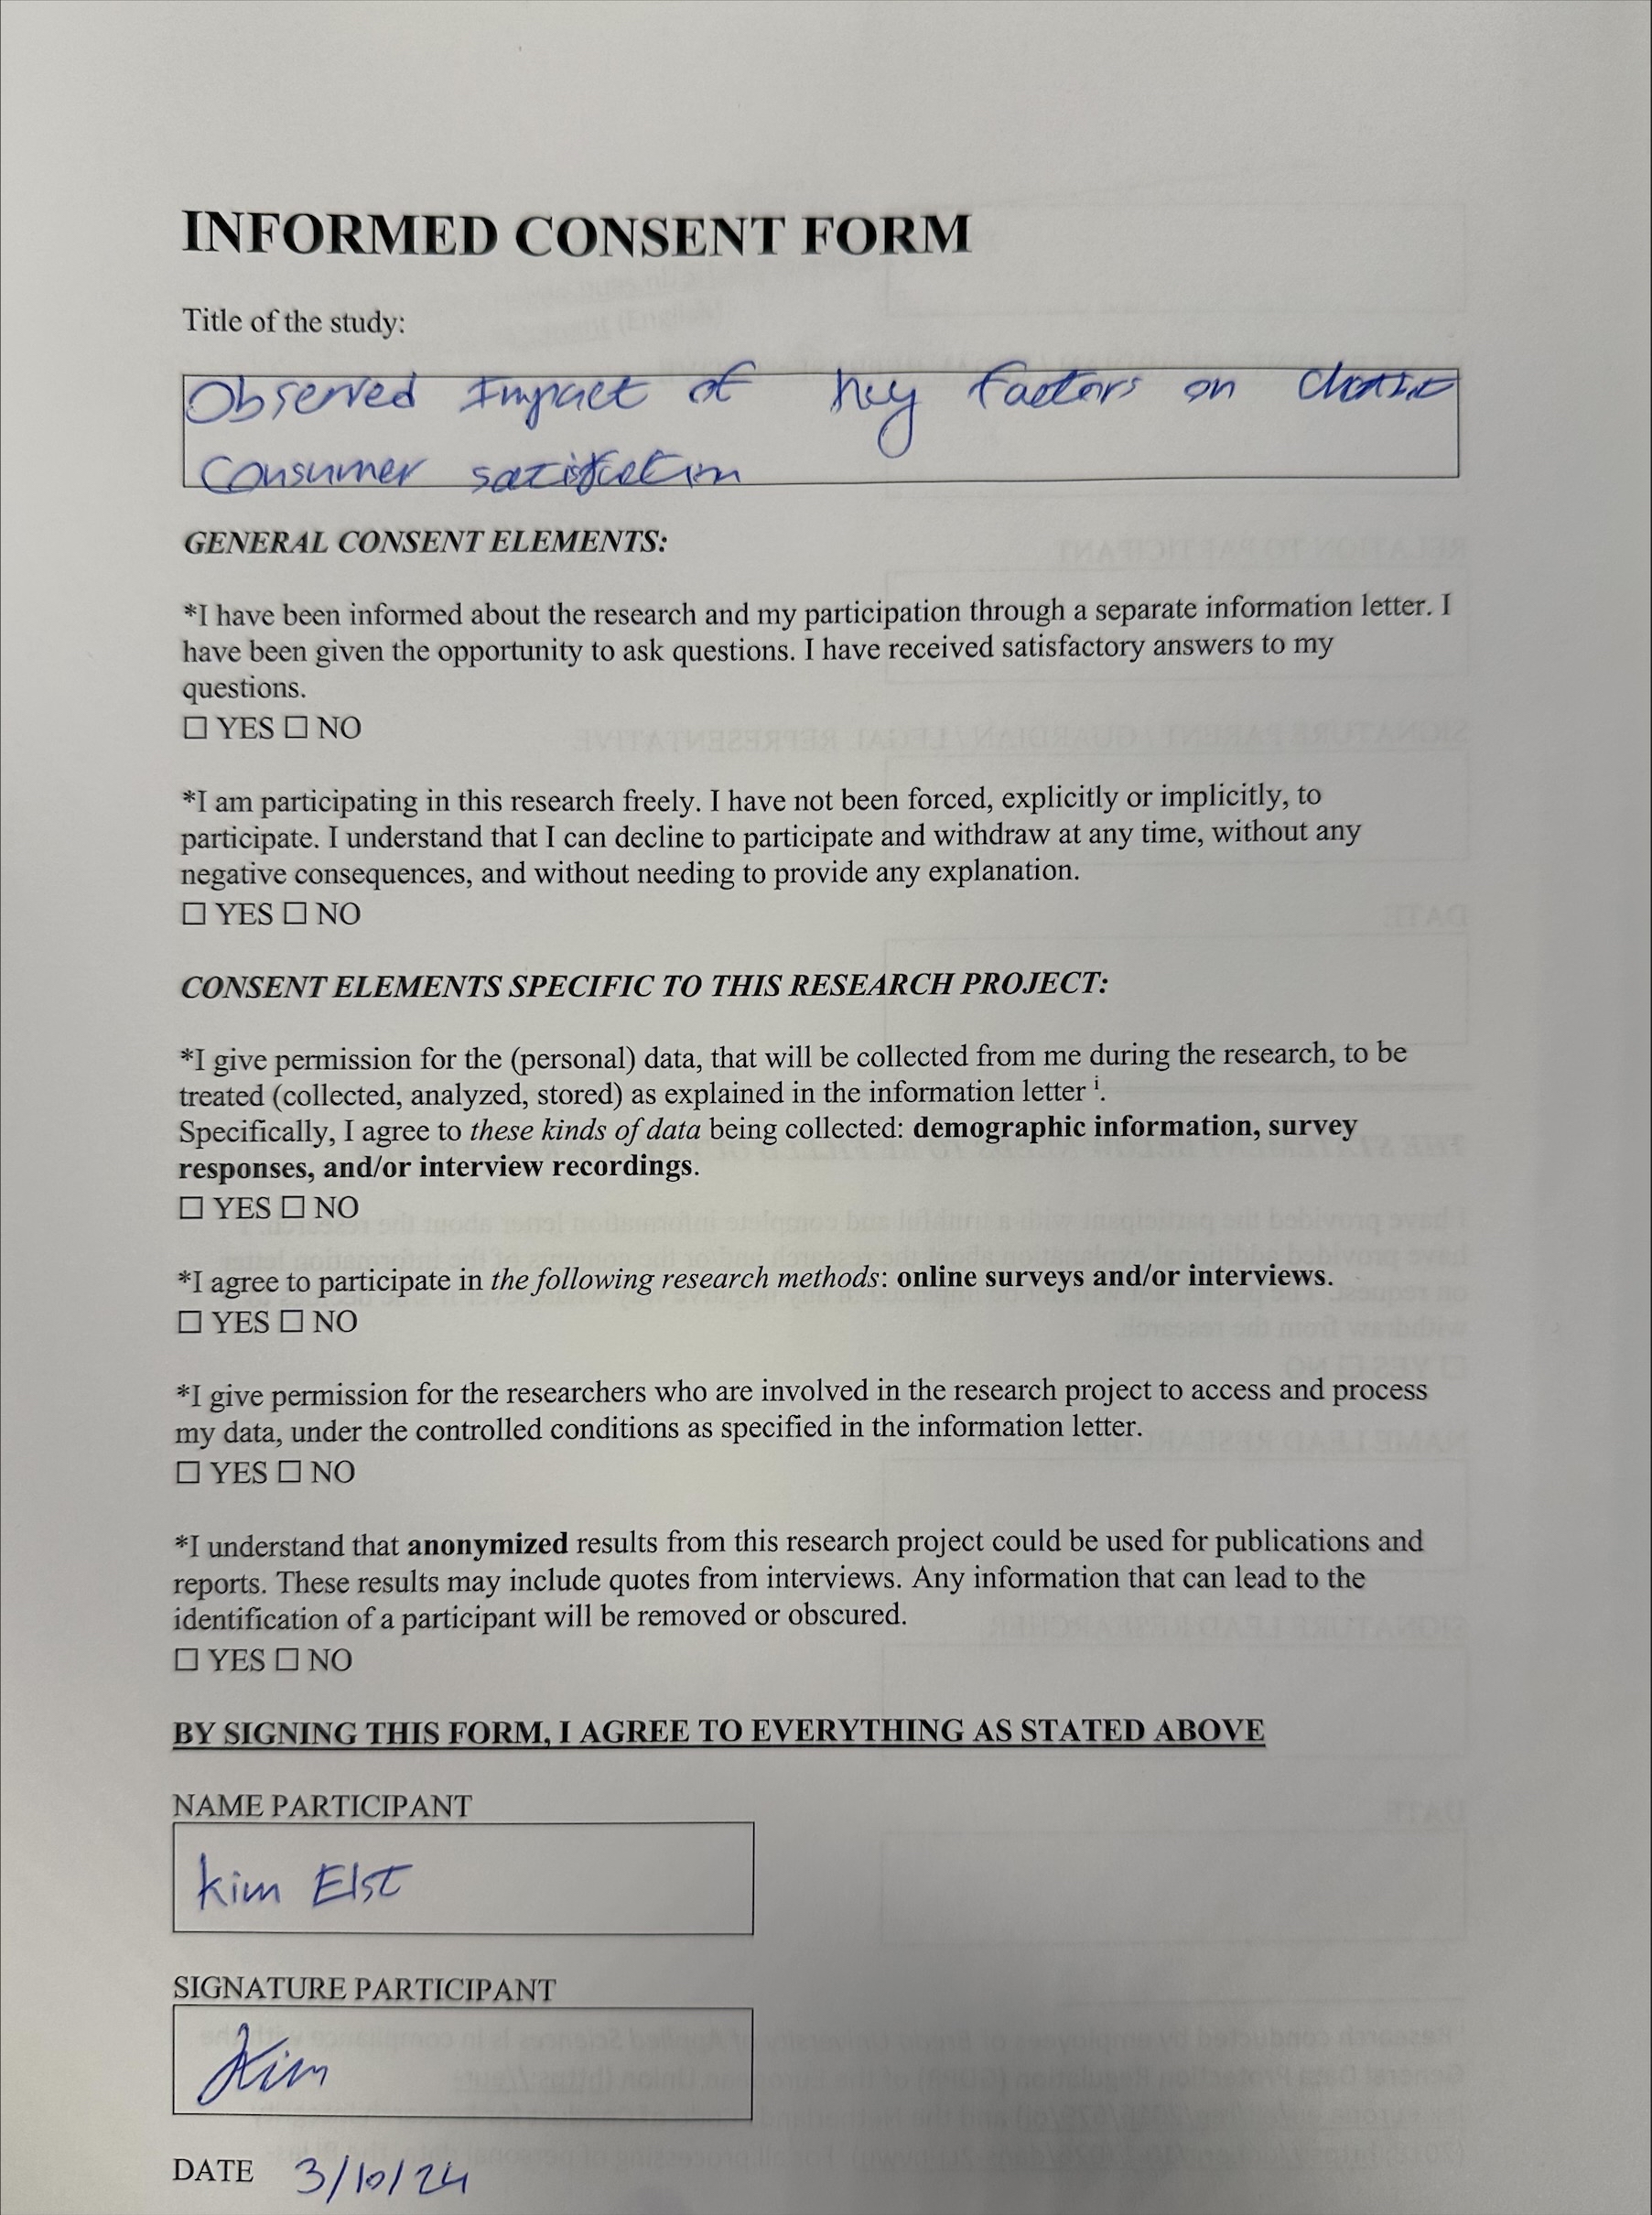 INFORMED CONSENT FORM
Title of the study:
Observed Impact of key factors on
Consumer satisfaction
GENERAL CONSENT ELEMENTS:
*I have been informed about the research and my participation through a separate information letter. I
have been given the opportunity to ask questions. I have received satisfactory answers to my
questions.
☐ YES ☐ NO
*I am participating in this research freely. I have not been forced, explicitly or implicitly, to
participate. I understand that I can decline to participate and withdraw at any time, without any
negative consequences, and without needing to provide any explanation.
☐ YES ☐ NO
CONSENT ELEMENTS SPECIFIC TO THIS RESEARCH PROJECT:
*I give permission for the (personal) data, that will be collected from me during the research, to be
treated (collected, analyzed, stored) as explained in the information letter i.
Specifically, I agree to these kinds of data being collected: demographic information, survey
responses, and/or interview recordings.
☐ YES ☐ NO
*I agree to participate in the following research methods: online surveys and/or interviews.
☐ YES ☐ NO
*I give permission for the researchers who are involved in the research project to access and process
my data, under the controlled conditions as specified in the information letter.
☐ YES ☐ NO
*I understand that anonymized results from this research project could be used for publications and
reports. These results may include quotes from interviews. Any information that can lead to the
identification of a participant will be removed or obscured.
☐ YES ☐ NO
BY SIGNING THIS FORM, I AGREE TO EVERYTHING AS STATED ABOVE
NAME PARTICIPANT
Kim Elst
SIGNATURE PARTICIPANT
Kim
DATE 3/10/24